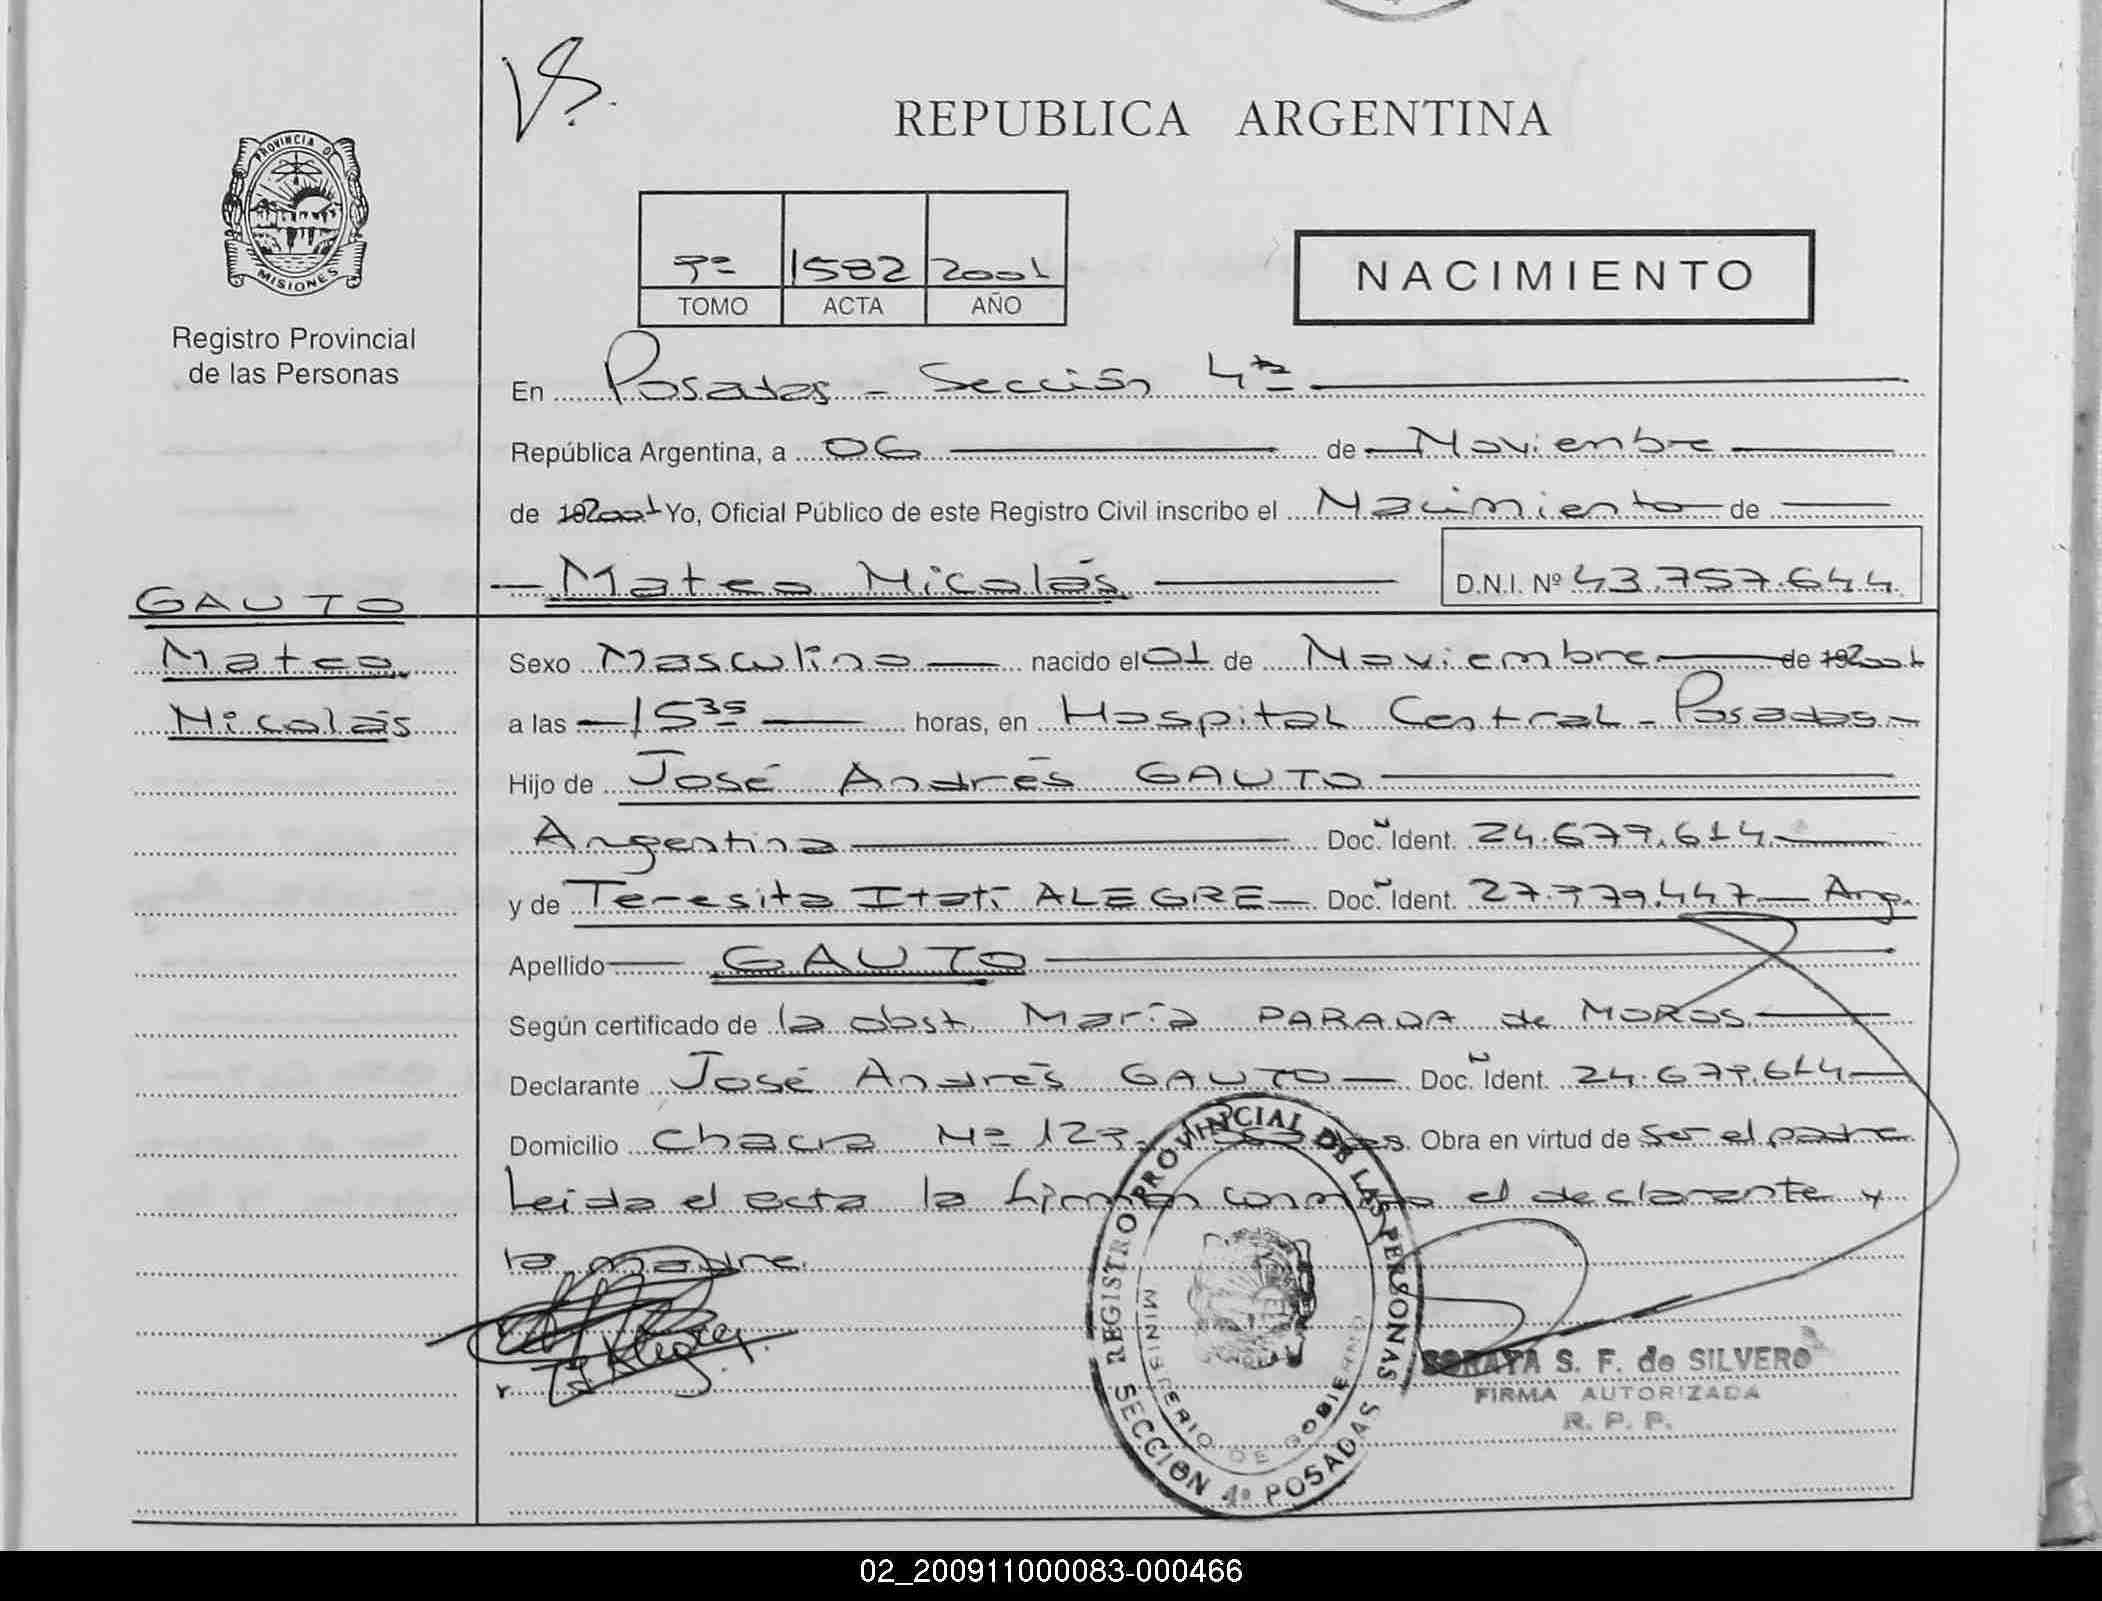 VS.
REPUBLICA ARGENTINA
PROVINCIA DE
MISIONES
Registro Provincial
de las Personas
7º 1582 2001
TOMO ACTA AÑO
NACIMIENTO
En Posadas - Sección 4ta
República Argentina, a 06 de Noviembre
de 192001 Yo, Oficial Público de este Registro Civil inscribo el Nacimiento de
Mateo Nicolás D.N.I. Nº 43.757.644
GAUTO
Mateo
Nicolás
Sexo Masculino nacido el 01 de Noviembre de 192001
a las 15 35 horas, en Hospital Central - Posadas -
Hijo de José Andrés GAUTO
Argentina Doc. Ident. 24.679.614
y de Teresita Itatí ALEGRE Doc. Ident. 27.379.447 Arg.
Apellido GAUTO
Según certificado de la obst. María PARADA de MOROS
Declarante José Andrés GAUTO Doc. Ident. 24.679.614
Domicilio Chacra Nº 127. Obra en virtud de ser el padre
Leida el acta la firman conmigo el declarante y
la madre.
REGISTRO PROVINCIAL DE LAS PERSONAS
MINISTERIO DE GOBIERNO
SECCION 4ª POSADAS
SORAYA S. F. de SILVERO
FIRMA AUTORIZADA
R. P. P.
02_200911000083-000466